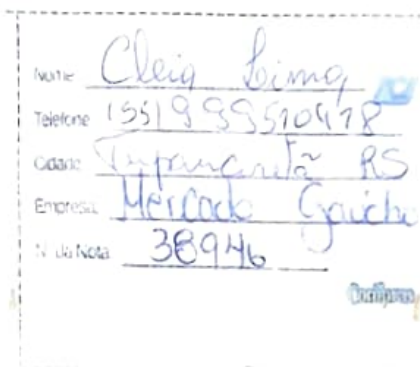 Nome Cleia Lima
Telefone (55) 999510418
Cidade Tupanciretã RS
Empresa Mercado Gaúcho
N. da Nota 38946